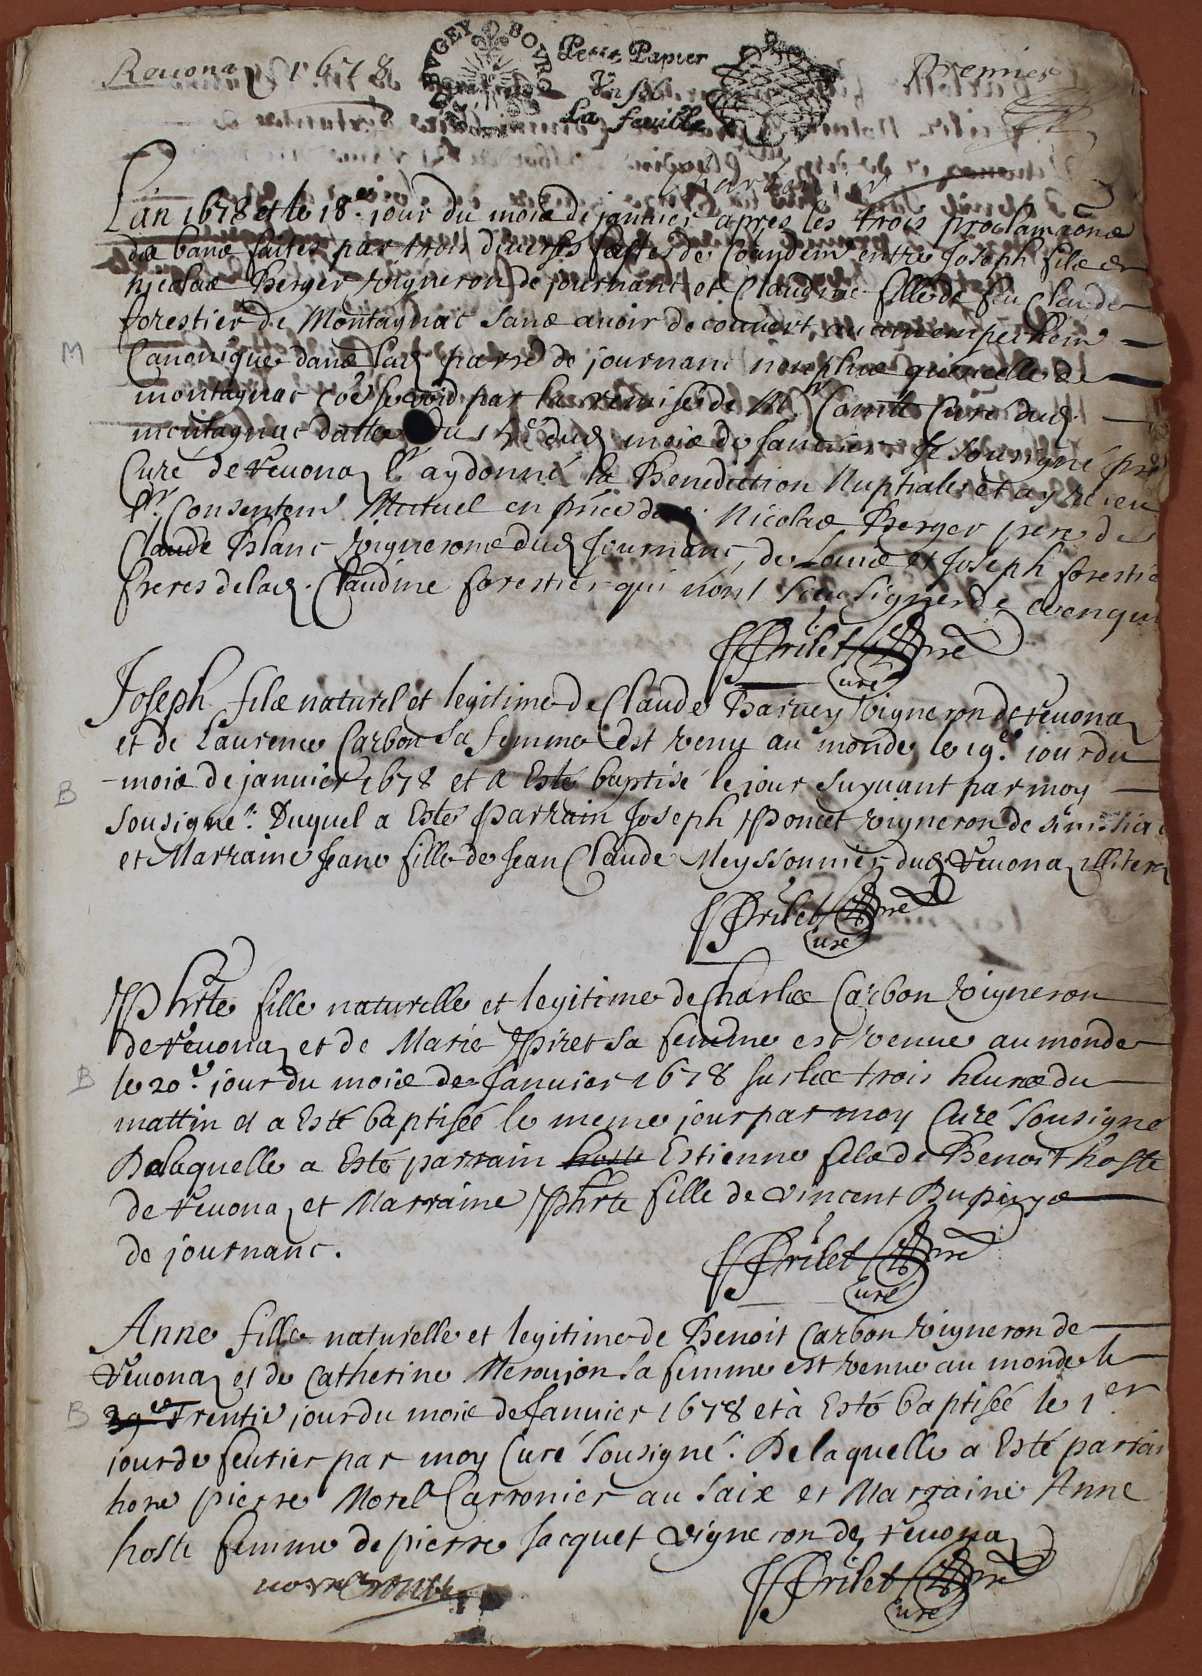 Reuonaz 1678
BVGEY BOVRG
Petit Papier
Vn sol
La feuille
Premier
L'an 1678 et le 18e. jour du mois de januier apres les trois proclamaons
des bans faites par trois diuerses festes de Coandem entre Joseph fils de
Nicolas Berger vigneron de journant et Claudine fille de feu Claude
forestier de Montagnac sans auoir decouuert aucun empeschem
Canonique dans lad parre de journanc non plus qu'en celle de
montagnac par la remise de Mr Comte Curé dud
montagnac dattée du dud mois de Januier Je sousigné pre
Curé de Reuonaz l' ay donné la Benediction Nuptiale et ay receu
Consentem Mutuel en pnce de Nicolas Berger pere de
Claude Blanc vignerons dud Journanc, de Louis et Joseph forestie
freres de lad. Claudine forestier qui n'ont sceu signer de ce enquis
Brilet pre
Curé
M
Joseph fils naturel et legitime de Claude Baruey vigneron de Reuonaz
et de Laurence Carbon sa femme est venu au monde le 19e. jour du
mois de januier 1678 et a Esté baptisé le jour suyuant par moy
sousigné. Duquel a Esté Parrain Joseph Poncet vigneron de
et Marraine Jeane fille de Jean Claude Meyssonnier dud Reuonaz illiter
B
Brilet pre
Curé
Phrte fille naturelle et legitime de Charles Carbon vigneron
de Reuonaz et de Marie Piret sa femme est venue au monde
le 20.e jour du mois de Januier 1678 sur les trois heures du
mattin et a Esté baptisée le meme jour par moy Curé sousigné
De laquelle a Esté parrain hoste Estienne fils de Benoit hoste
de Reuonaz et Marraine Phrte fille de Vincent Dupuys
de journanc.
B
Brilet pre
Curé
Anne fille naturelle et legitime de Benoit Carbon vigneron de
Reuonaz et de Catherine Meroujon sa femme est venue au monde le
29e Trentie jour du mois de Januier 1678 et à Esté baptisée le 1er
jour de feurier par moy Curé sousigné. De laquelle a Esté parrain
hone pierre Morel Carronier au saix et Marraine Anne
hoste femme de pierre Jacquet vigneron de Reuonaz
B
Brilet pre
Curé